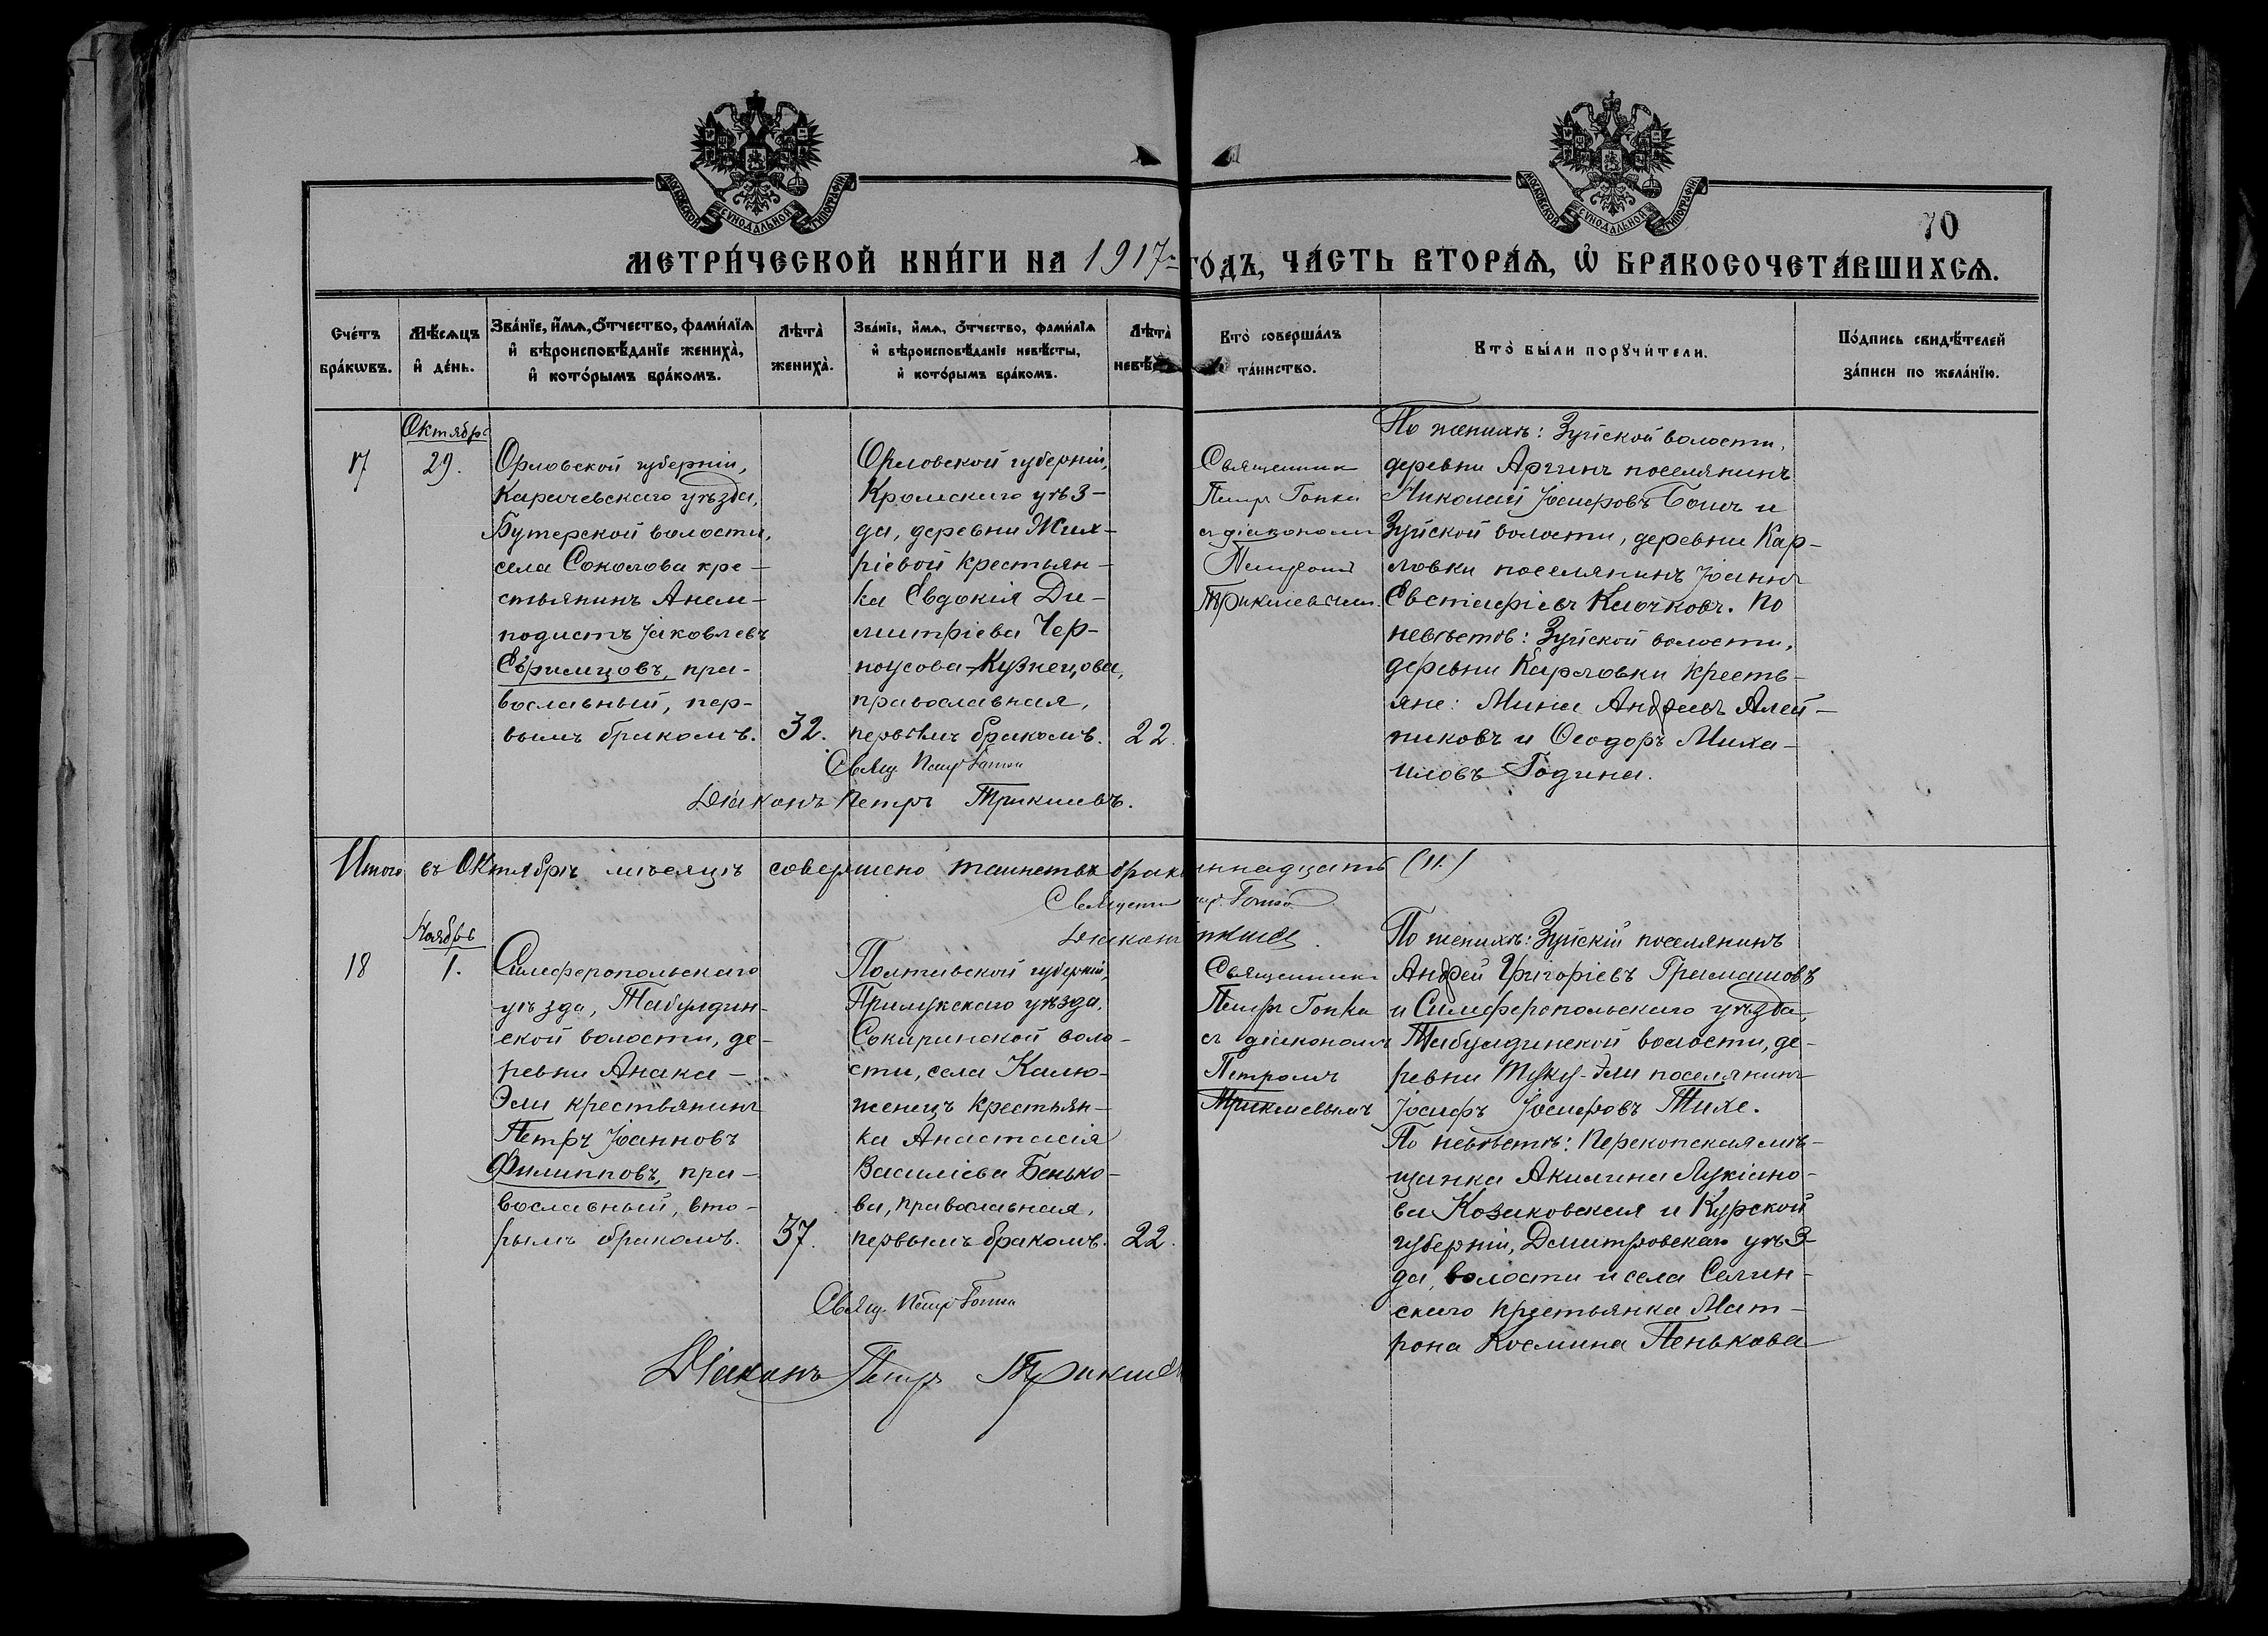 МОСКОВСКОЙ СУНОДАЛЬНОЙ ТИПОГРАФІИ.
МОСКОВСКОЙ СУНОДАЛЬНОЙ ТИПОГРАФІИ.
70
МЕТРИ́ЧЕСКОЙ КНИ́ГИ НА 1917 ГО́ДЪ, ЧА́СТЬ ВТОРА́Ѧ, Ѡ҆ БРАКОСОЧЕТА́ВШИХСѦ.
Сче́тъ бра́кѡвъ.
Мѣ́сѧцъ и҆ де́нь.
Зва́нїе, и҆́мѧ, ѻ҆́тчество, фами́лїѧ
и҆ вѣроисповѣ́данїе жениха̀,
и҆ кото́рымъ бра́комъ.
Лѣта̀ жениха̀.
Зва́нїе, и҆́мѧ, ѻ҆́тчество, фами́лїѧ
и҆ вѣроисповѣ́данїе невѣ́сты,
и҆ кото́рымъ бра́комъ.
Лѣта̀
Кто̀ соверша́лъ
та́инство.
Кто̀ бы́ли порꙋчи́тели.
По́дпись свидѣ́телей
за́писи по жела́нїю.
Октябрь
17
29.
Орловской губерніи,
Карачевскаго уѣзда,
Бутерской волости,
села Соколова кре-
стьянинъ Анем-
подистъ Іаковлевъ
Ефримцовъ, пра-
вославный, пер-
вымъ бракомъ.
32.
Орловской губерніи,
Кромскаго уѣз-
да, деревни Жих-
ріевой крестьян-
ка Евдокія Ди-
митріева Чер-
ноусова-Кузнецова,
православная,
первымъ бракомъ.
22.
Священник
Петръ Гопка
съ діакономъ
Петромъ
Трикишевым.
По женихѣ: Зуйской волости,
деревни Аргинъ поселянинъ
Николай Іосифовъ Боич и
Зуйской волости, деревни Кар-
ловки поселянинъ Іоаннъ
Евстафіевъ Клочковъ. По
невѣстѣ: Зуйской волости,
деревни Карловки кресть-
яне: Мина Андреевъ Алей-
никовъ и Ѳеодоръ Миха-
иловъ Година.
Свящ. Петръ Гопка
Діаконъ Петръ Трикишевъ.
Итого въ Октябрѣ мѣсяцѣ совершено таинствъ брака ннадцать (11.)
Священ Гопка
Діаконъ
Ноябрь
18
1.
Симферопольскаго
уѣзда, Табулдин-
ской волости, де-
ревни Анака-
Эли крестьянинъ
Петръ Іоанновъ
Филипповъ, пра-
вославный, вто-
рымъ бракомъ.
37.
Полтавской губерніи,
Прилукскаго уѣзда,
Сокиринской воло-
сти, села Калю-
женецъ крестьян-
ка Анастасія
Василіева Бенько-
ва, православная,
первымъ бракомъ.
22.
Священник
Петръ Гопка
съ діакономъ
Петромъ
Трикишевымъ
По женихѣ: Зуйскій поселянинъ
Андрей Григоріевъ Грамашовъ
и Симферопольскаго уѣзда,
Табулдинской волости, де-
ревни Туку-Эли поселянинъ
Іосифъ Іосифовъ Тихе.
По невѣстѣ: Перекопская мѣ-
щанка Акилина Лукіано-
ва Козаковская и Курской
губерніи, Дмитровскаго уѣз-
да, волости и села Селин-
скаго крестьянка Мат-
рона Космина Пенькова
Свящ. Петръ Гопка
Діаконъ Петръ Трикишев